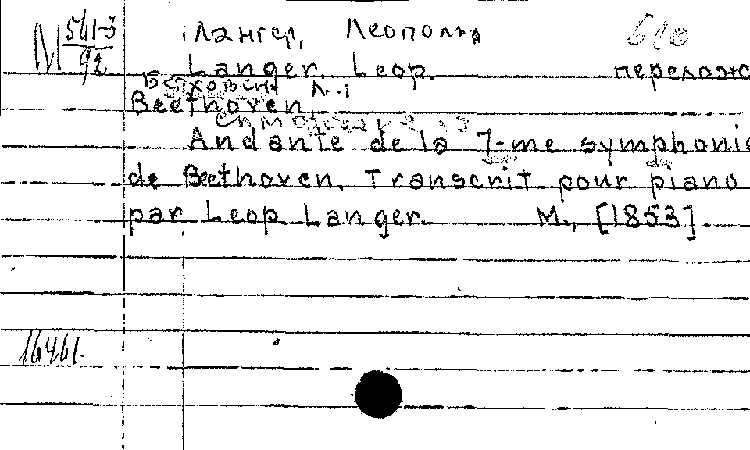 М 541-3/92
Лангер, Леопольд
Langer, Leop. перелож
Бетховен, Л.
Beethoven,
Andante de la 7-me symphonie
de Beethoven. Transcrit pour piano
par Leop. Langer. М., [1853]
16461.